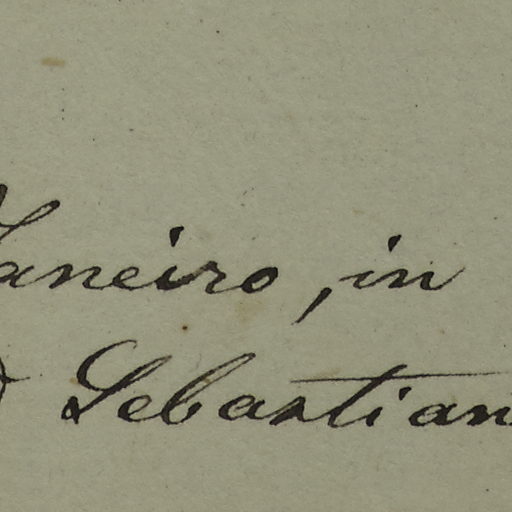 Janeiro, in
Sebastian